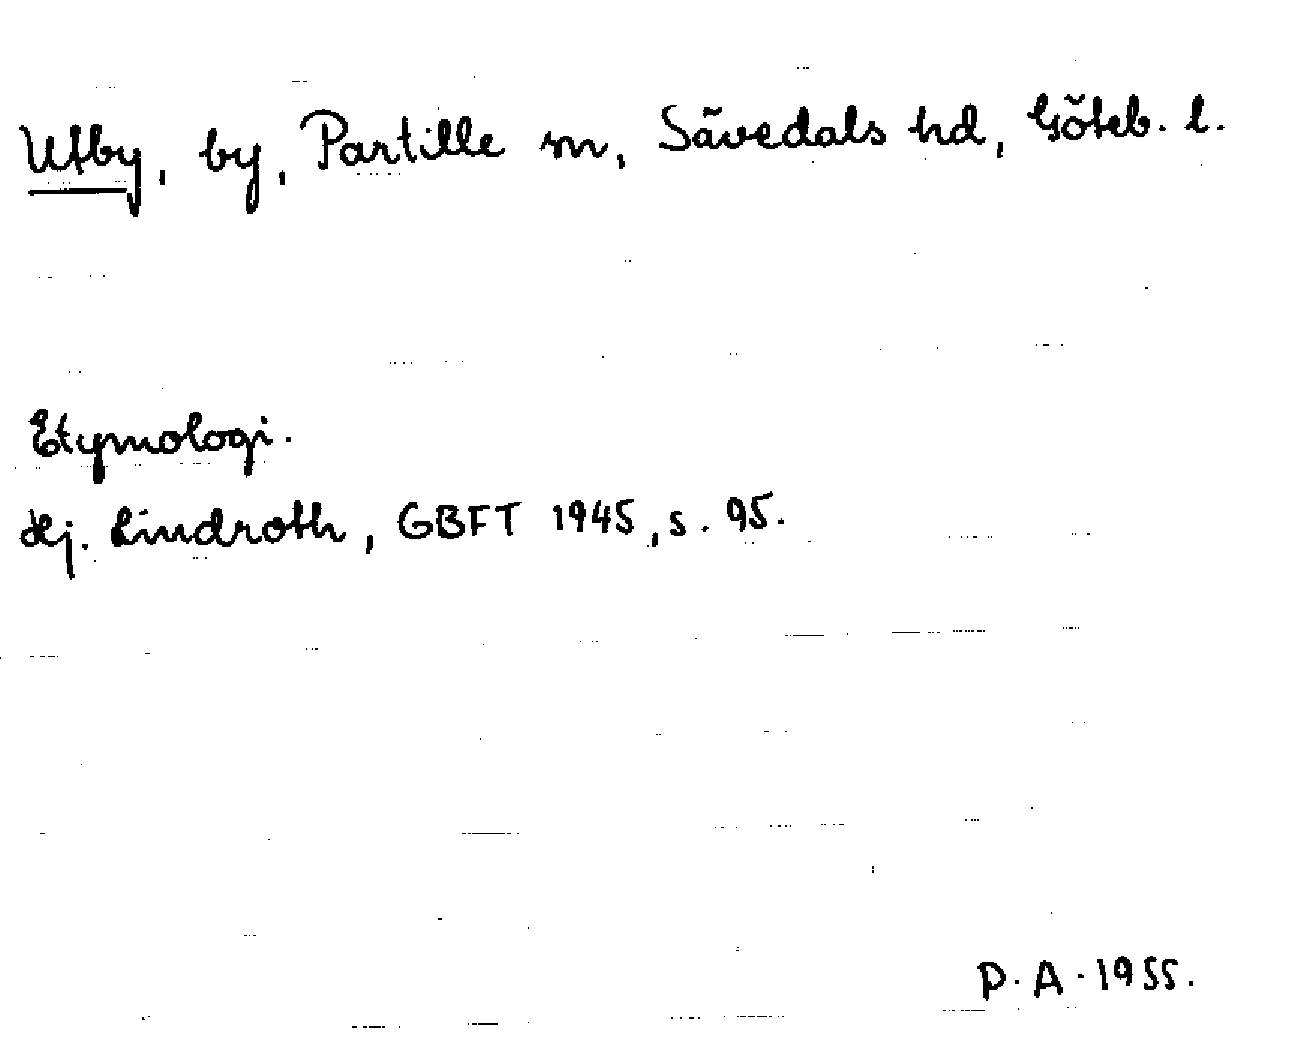 Utby, by, Partille sn, Sävedals hd, Göteb. l.
Etymologi.
Hj. Lindroth, GBFT 1945, s. 95.
P.A. 1955.